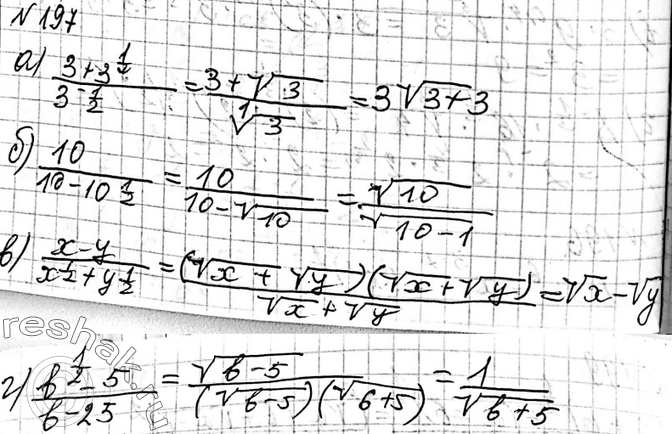 №197
а) (3+3^(1/2))/(3^(-1/2)) = (3+√3)/(1/√3) = 3√3+3
б) 10/(10-10^(1/2)) = 10/(10-√10) = √10/(√10-1)
в) (x-y)/(x^(1/2)+y^(1/2)) = ((√x+√y)(√x+√y))/(√x+√y) = √x-√y
г) (b^(1/2)-5)/(b-25) = (√b-5)/((√b-5)(√b+5)) = 1/(√b+5)
reshak.ru